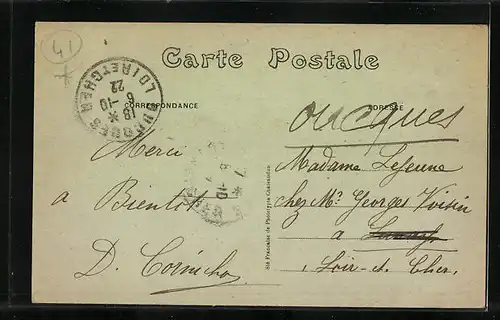 41
Carte Postale
CORRESPONDANCE
ADRESSE
OUCQUES
LOIR-ET-CHER
18 *
6 -10
22
Merci
a Bientôt
D. Cornichon
oucques
Madame Lejeune
chez Mr Georges Voisin
a
Loir-et-Cher
Sté Française de Phototypie